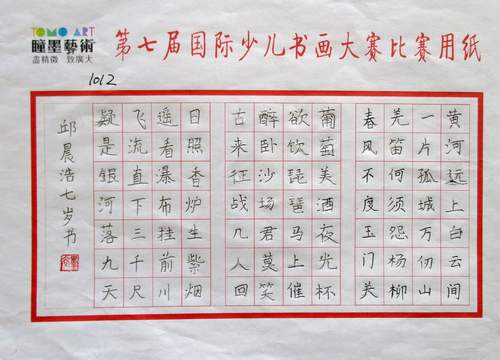 TOMO ART
瞳墨藝術
盡精微 致廣大
第七届国际少儿书画大赛比赛用纸
1012
黄河远上白云间
一片孤城万仞山
羌笛何须怨杨柳
春风不度玉门关
葡萄美酒夜光杯
欲饮琵琶马上催
醉卧沙场君莫笑
古来征战几人回
日照香炉生紫烟
遥看瀑布挂前川
飞流直下三千尺
疑是银河落九天
邱晨浩七岁书